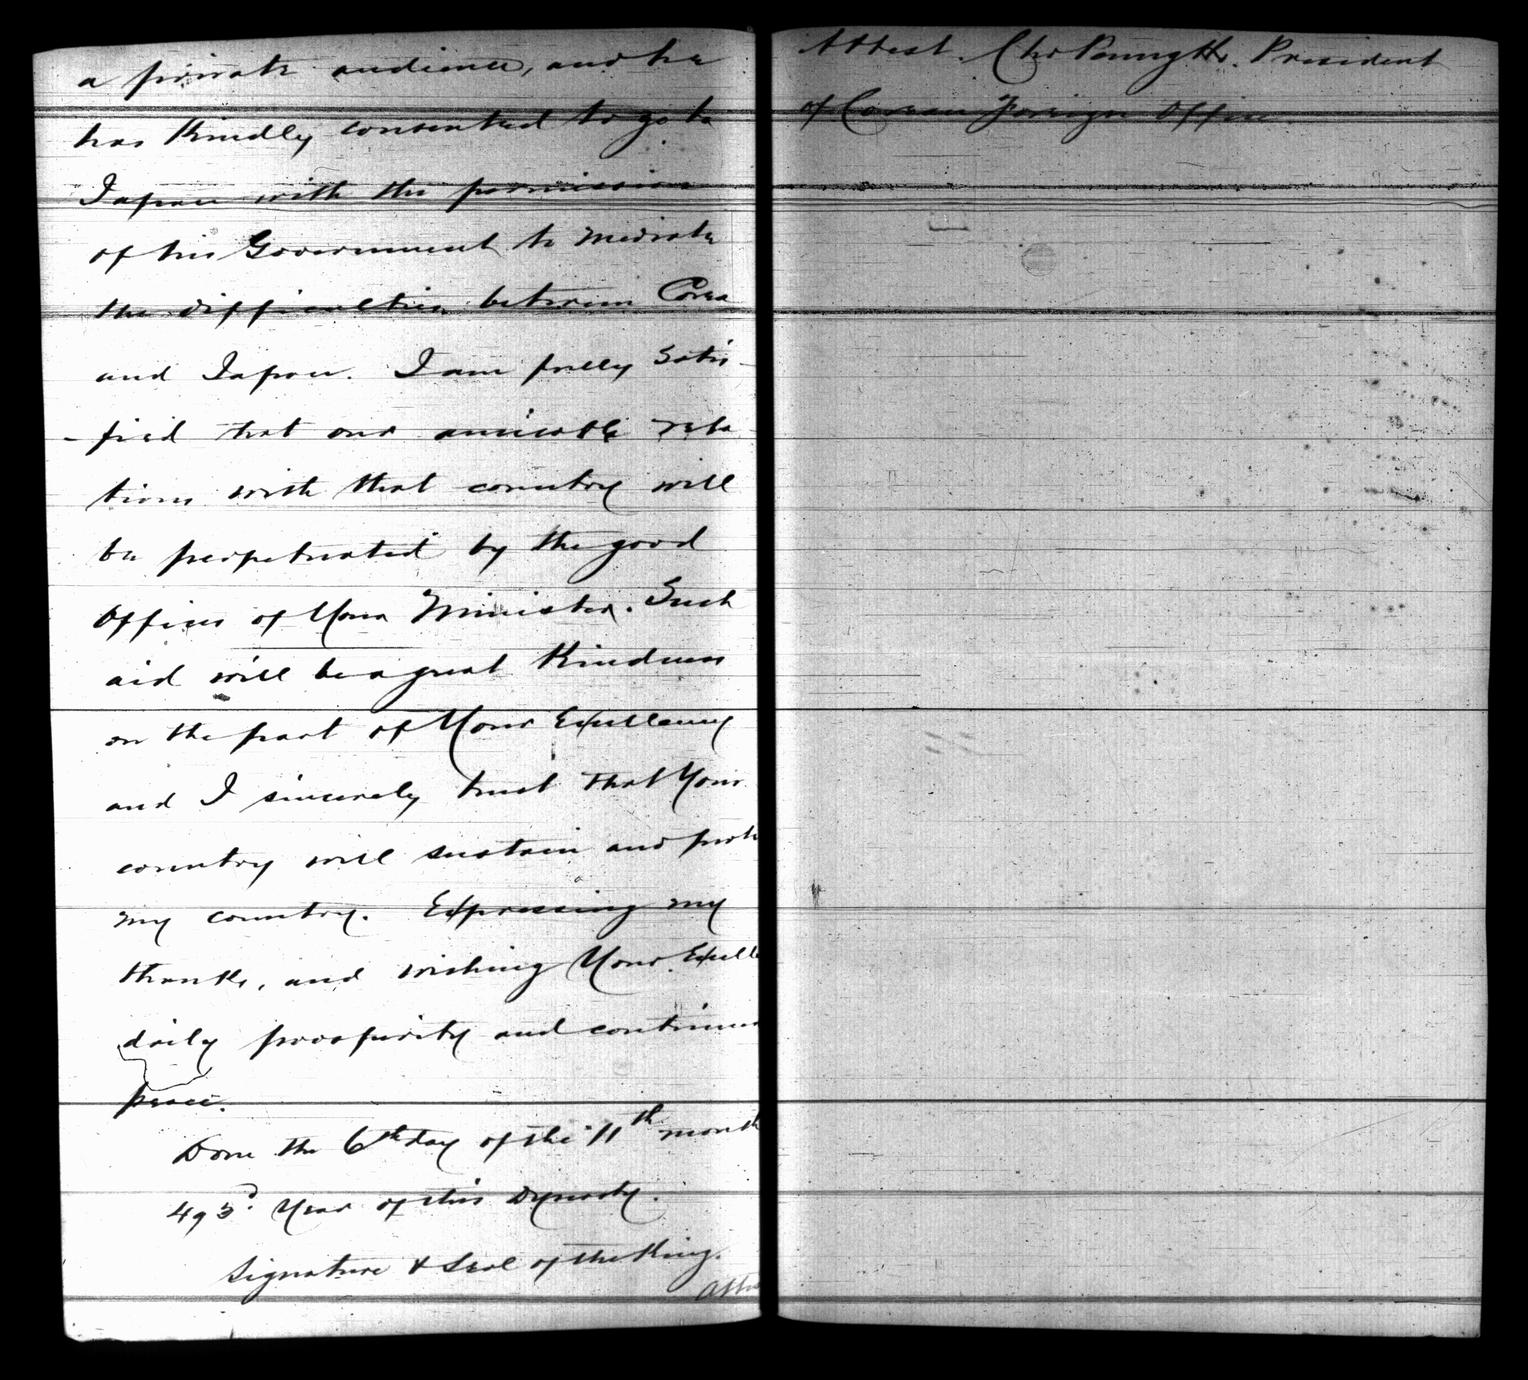 a private audience, and he
has kindly consented to go to
Japan with the permission
of his Government to mediate
the difficulties between Corea
and Japan. I am fully satis-
-fied that our amicable rela-
tions with that country will
be perpetuated by the good
offices of Your Minister. Such
aid will be a great kindness
on the part of Your Excellency
and I sincerely trust that Your
country will sustain and prote
my country. Expressing my
thanks, and wishing Your Excelle
daily prosperity and continued
peace.
Done the 6th day of the 11th month
493d Year of this Dynasty.
Signature & Seal of the King.
Attest
Attest. Cho Pung Ho. President
of Corean Foreign Office.